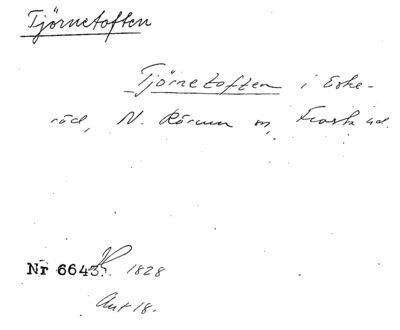 Tjörnetoften
Tjörnetoften i Eske-
röd, N. Rörum s, Frosta hd.
Nr 6643. 1828
Akt 18.